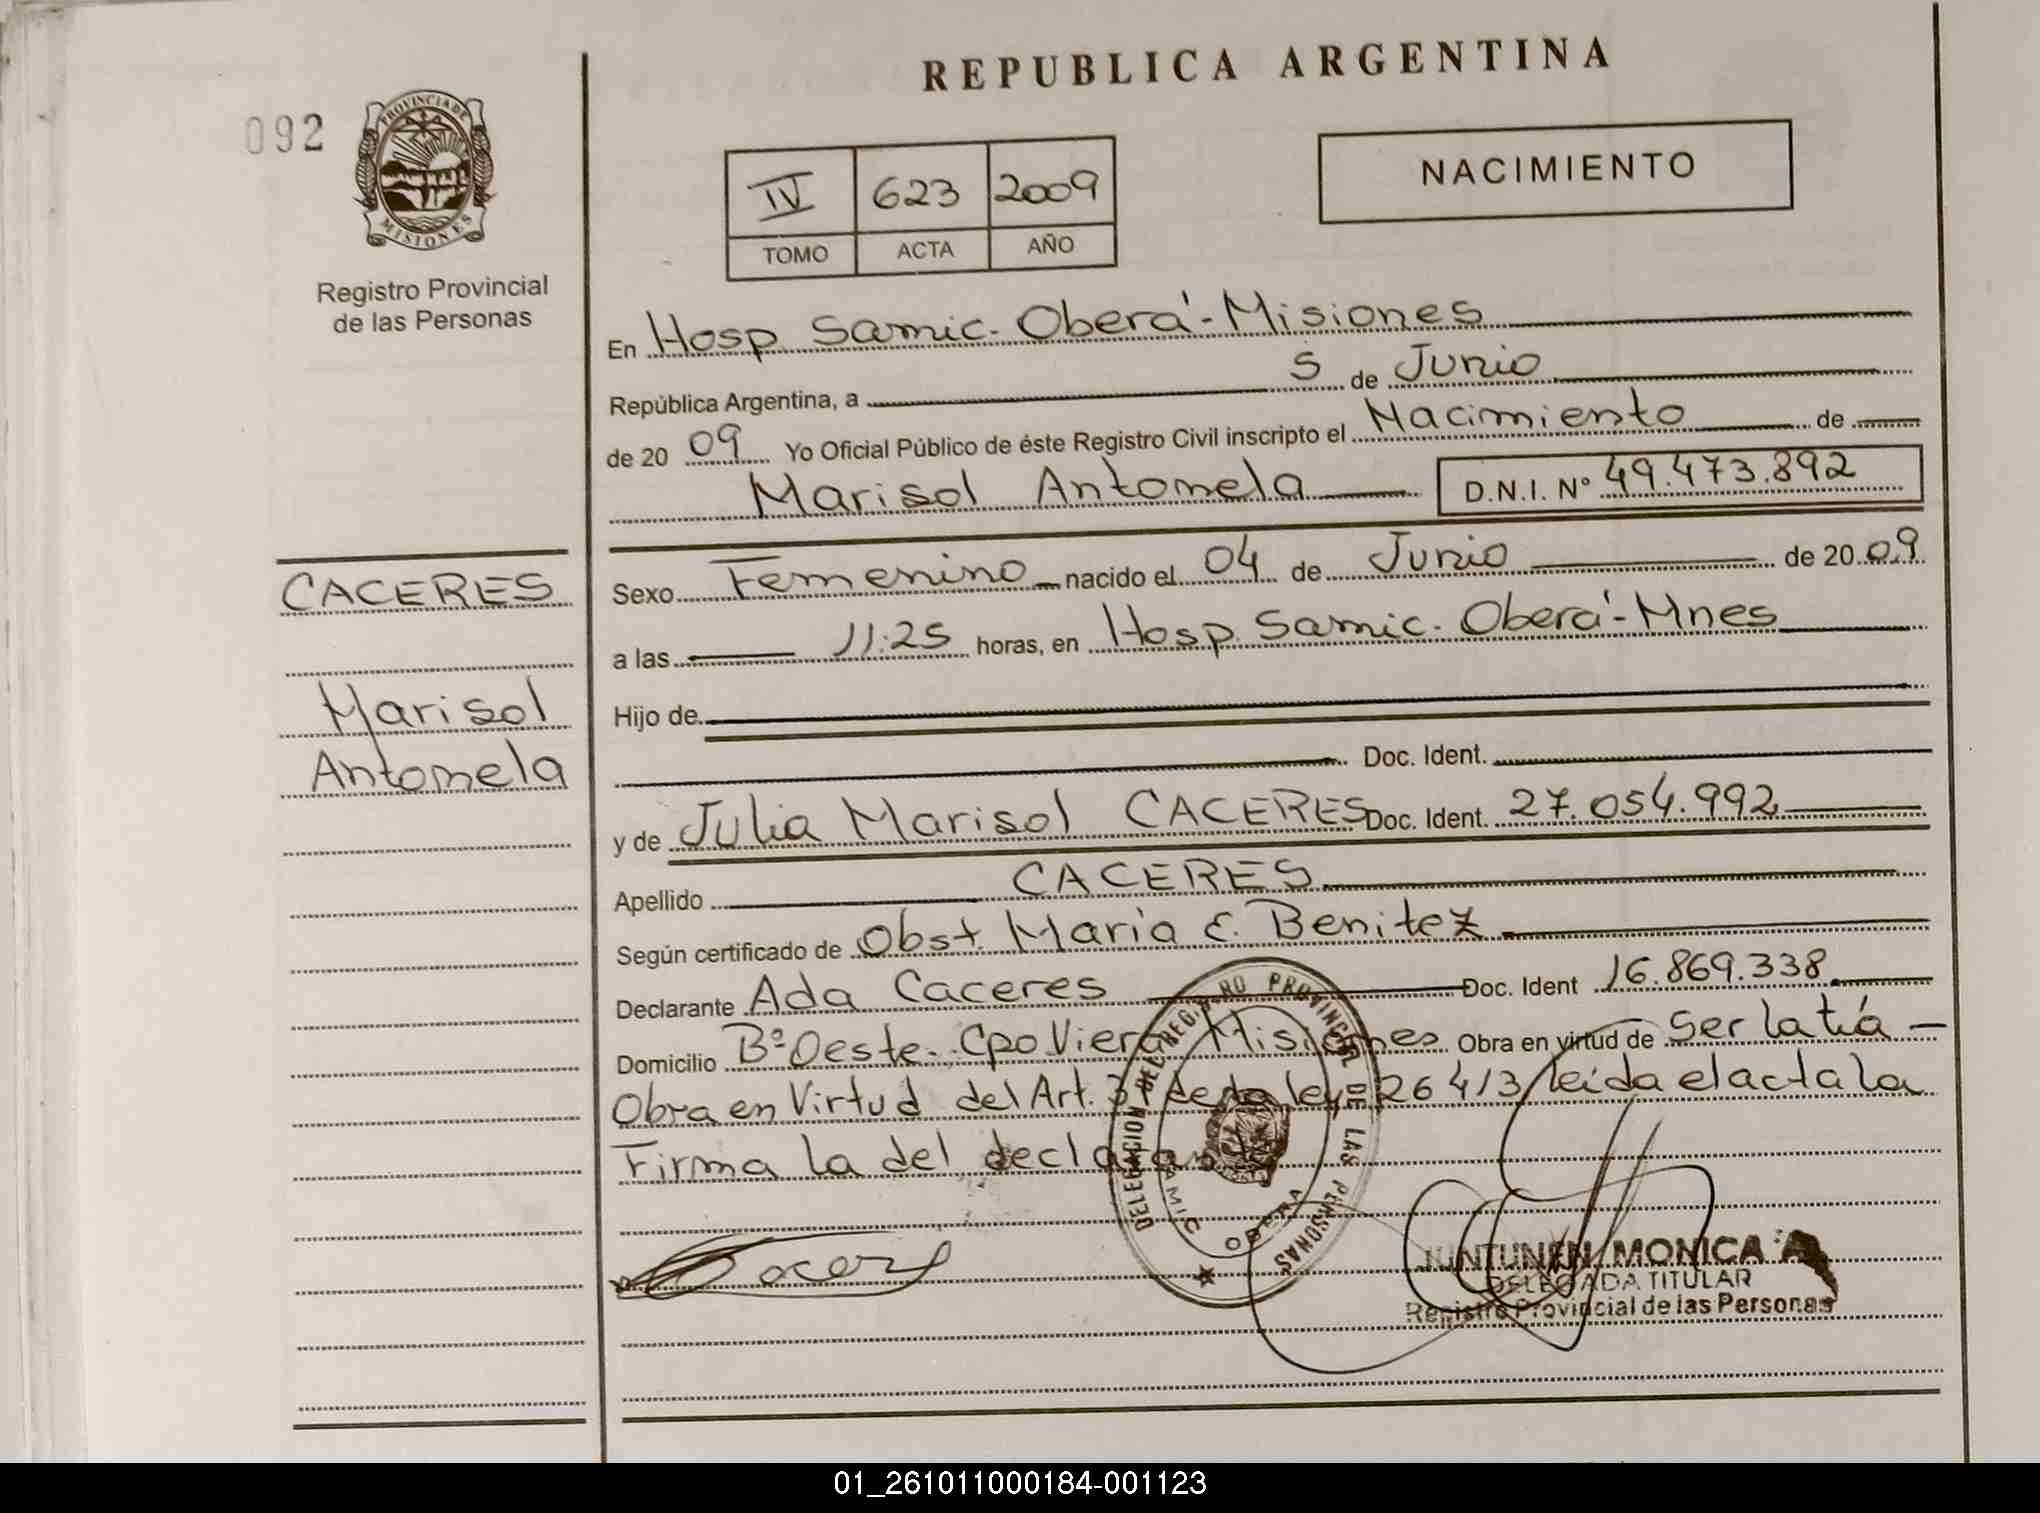 REPUBLICA ARGENTINA
092
PROVINCIA DE
MISIONES
Registro Provincial
de las Personas
IV 623 2009
TOMO ACTA AÑO
NACIMIENTO
En Hosp Samic. Oberá-Misiones
República Argentina, a 5 de Junio
de 20 09 Yo Oficial Público de éste Registro Civil inscripto el Nacimiento de
Marisol Antonela D.N.I. Nº 49.473.892
CACERES
Marisol
Antonela
Sexo Femenino nacido el 04 de Junio de 20 09
a las 11:25 horas, en Hosp. Samic. Oberá-Mnes
Hijo de
Doc. Ident.
y de Julia Marisol CACERES Doc. Ident. 27.054.992
Apellido CACERES
Según certificado de Obst. Maria E. Benitez
Declarante Ada Caceres Doc. Ident 16.869.338
Domicilio Bº Oeste. Cpo Viera Misiones Obra en virtud de Ser la tía
Obra en Virtud del Art. de la ley 26413 leída el acta la
Firma la del
DELEGACION DEL REGISTRO PROVINCIAL DE LAS PERSONAS
SAMIC OBERA
JUNTUNEN MONICA A
DELEGADA TITULAR
Registro Provincial de las Personas
01_261011000184-001123